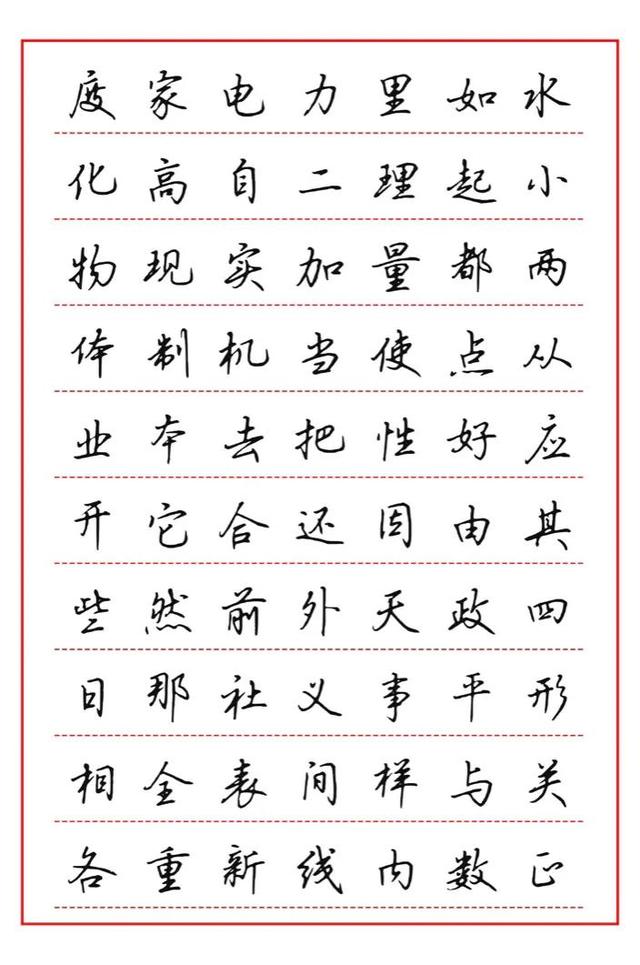 度家电力里如水
化高自二理起小
物现实加量都两
体制机当使点从
业本去把性好应
开它合还因由其
些然前外天政四
日那社义事平形
相全表间样与关
各重新线内数正